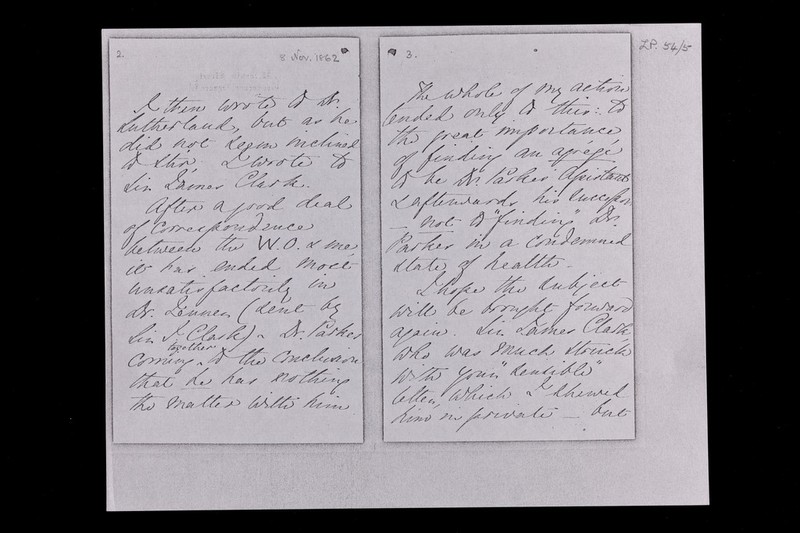 2.
8 Nov. 1862
I then wrote to Dr.
Sutherland, but as he
did not seem inclined
to stir I wrote to
Sir James Clark.
After a good deal
of correspondence
between the W.O. & me
it has ended most
unsatisfactorily in
Dr. Jenner (sent by
Sir J. Clark) & Dr. Parkes
coming together to the conclusion
that he has nothing
the matter with him
3.
LP. 54/5
The whole of my action
tended only to this: to
the great importance
of finding an agrégé
to be Dr. Parkes' Assistant
& afterwards his successor
— not to "finding" Dr.
Parkes in a condemned
state of health.
I hope the subject
will be brought forward
again. Sir James Clark,
who was much struck
with your "sensible"
letter, which I shewed
him in private — but